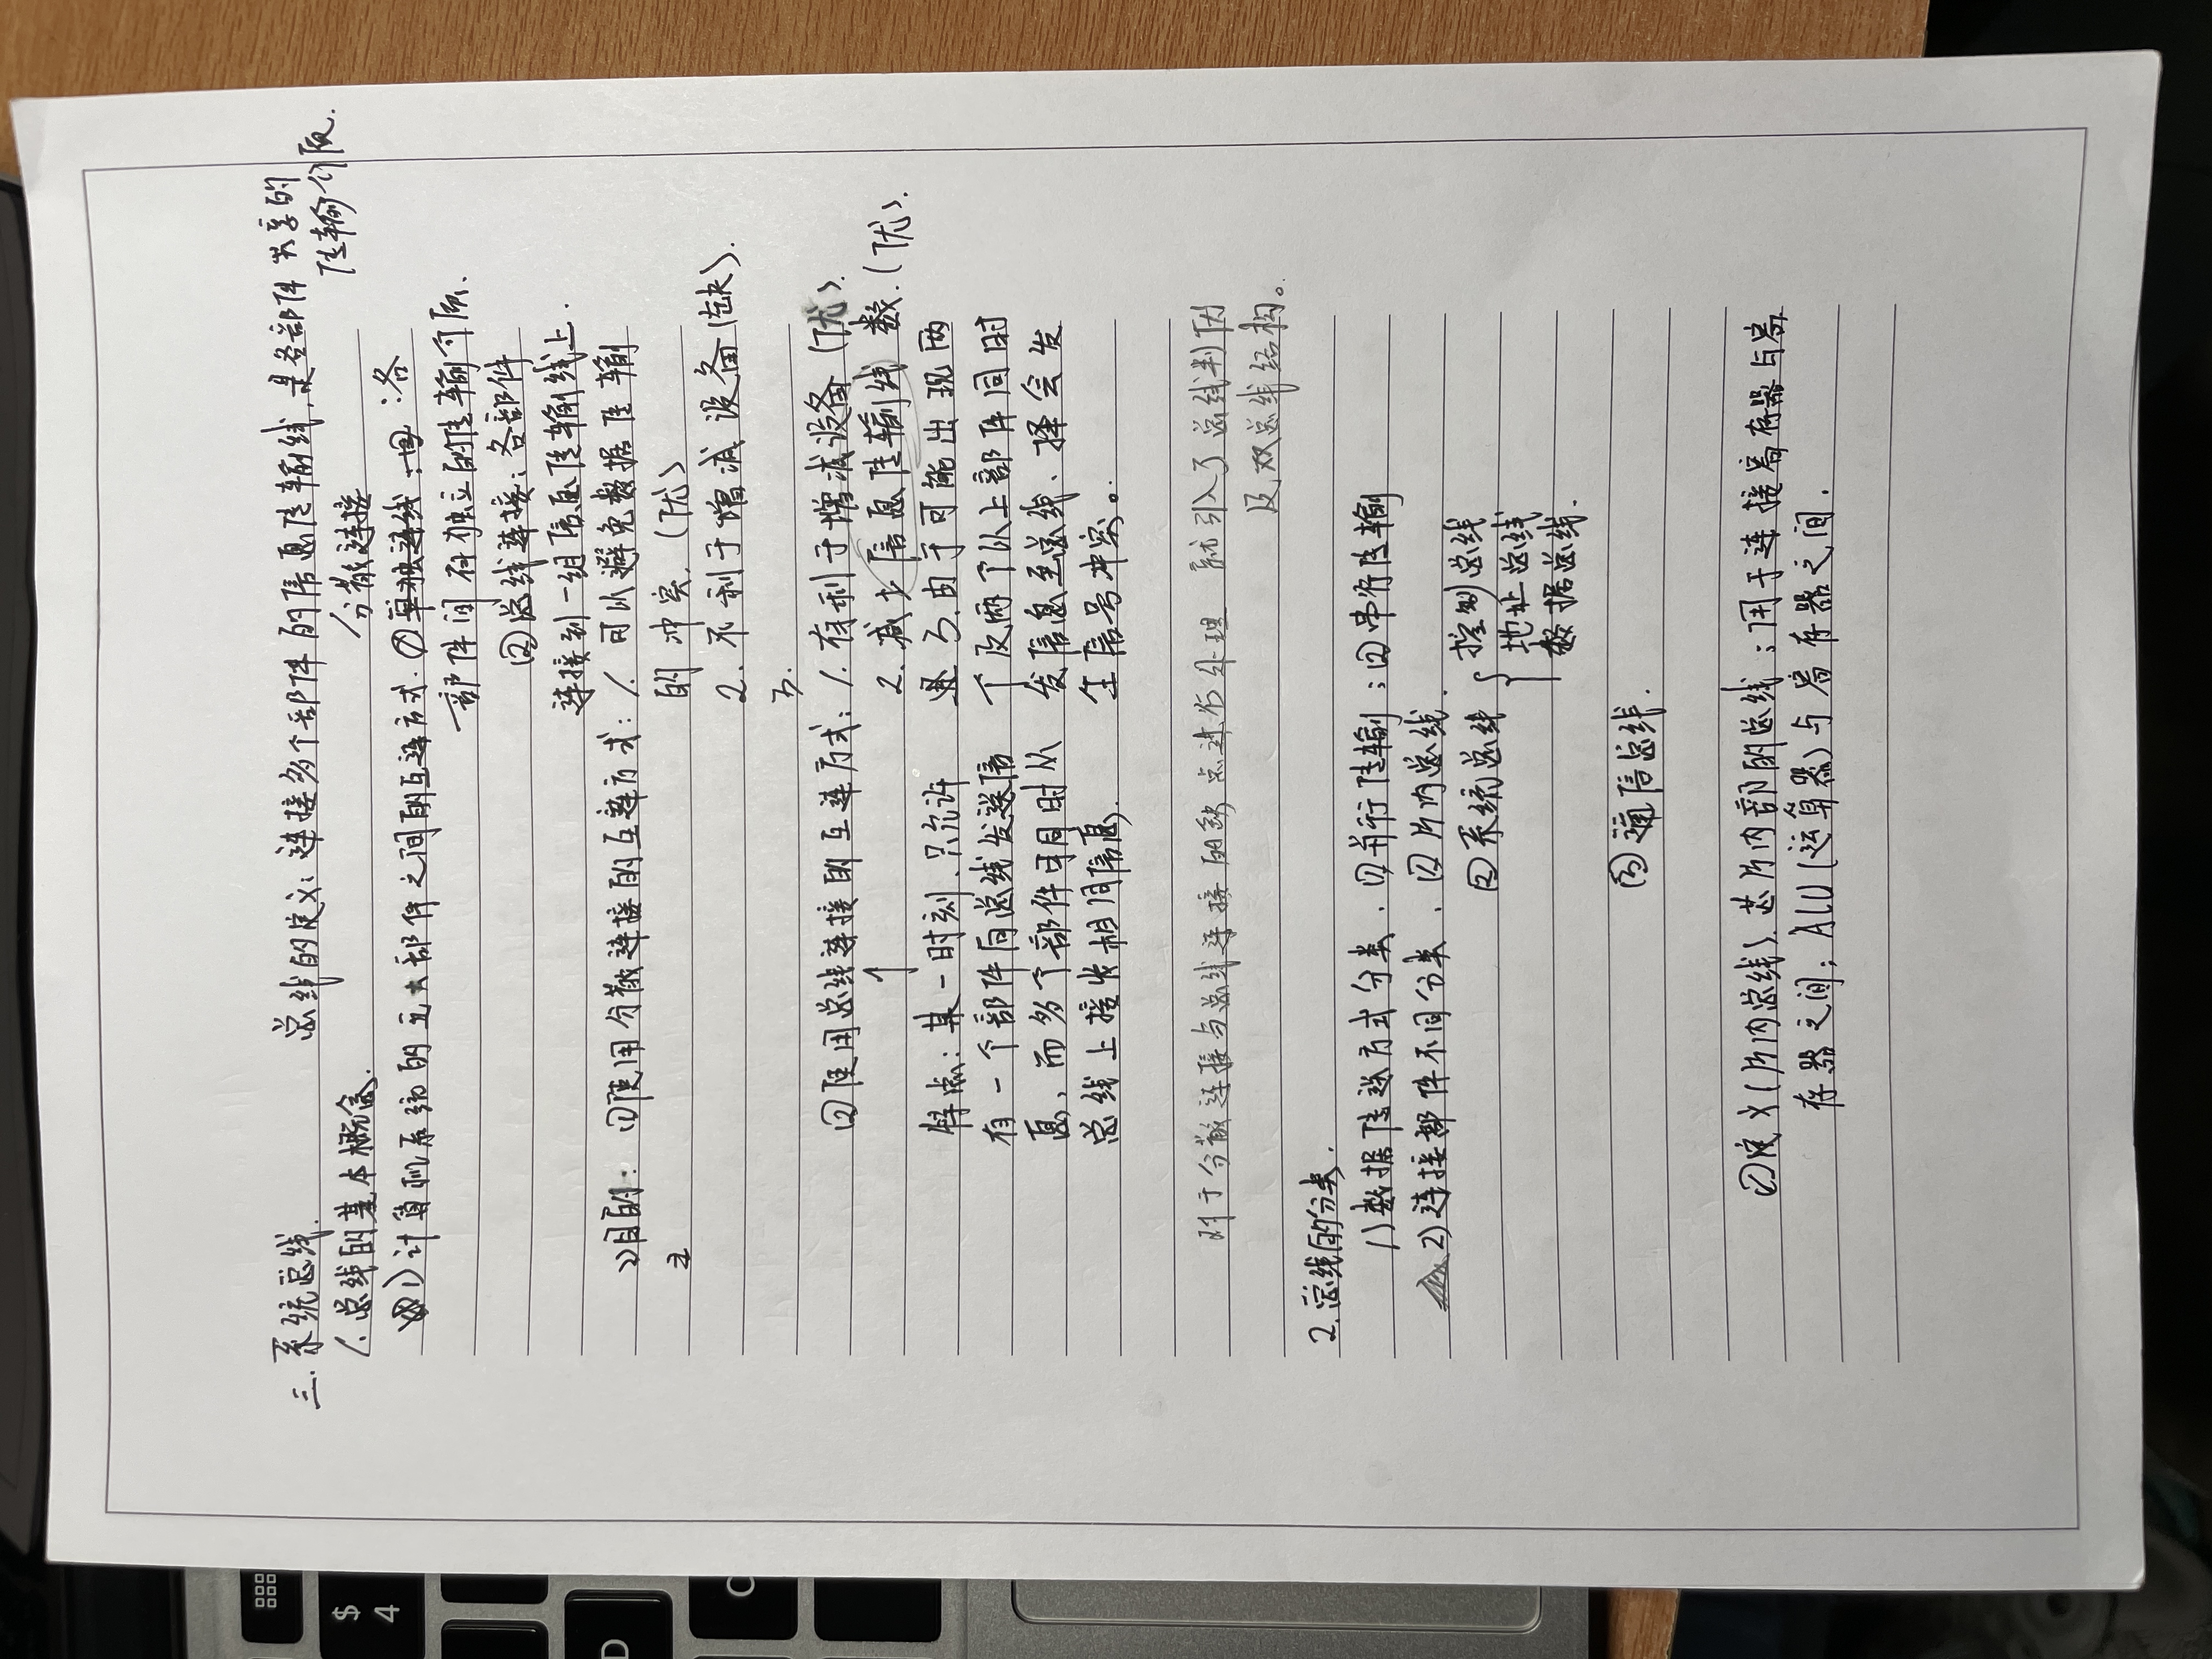 三.系统总线.　总线的定义:连接多个部件的信息传输线,是各部件共享的
传输介质.
1.总线的基本概念.
分散连接
1)计算机系统的五大部件之间的互连方式.①单独连线:②:各
部件间有独立的传输介质.
②总线连接:各部件
连接到一组信息传输线上.
2)目的:①使用分散连接的互连方式:1.可以避免数据传输
的冲突.(优)
2.不利于增减设备(缺).
3.
②使用总线连接的互连方式:1.有利于增减设备(优).
2.减少信息传输线数.(优).
特点:某一时刻.只允许
有一个部件向总线发送信
息,而多个部件可同时从
总线上接收相同信息.
3.由于可能出现两
个及两个以上部件同时
发信息至总线、择会发
生信号冲突。
对于分散连接与总线连接的缺点进行处理 就引入了总线判优
及双总线结构。
2.总线的分类.
1)数据传送方式分类.①并行传输;②串行传输
2)连接部件不同分类.①片内总线.
②系统总线{控制总线
地址总线
数据总线.
③通信总线.
①定义(片内总线).芯片内部的总线;用于连接寄存器与寄
存器之间;ALU(运算器)与寄存器之间.
$
4
D
C